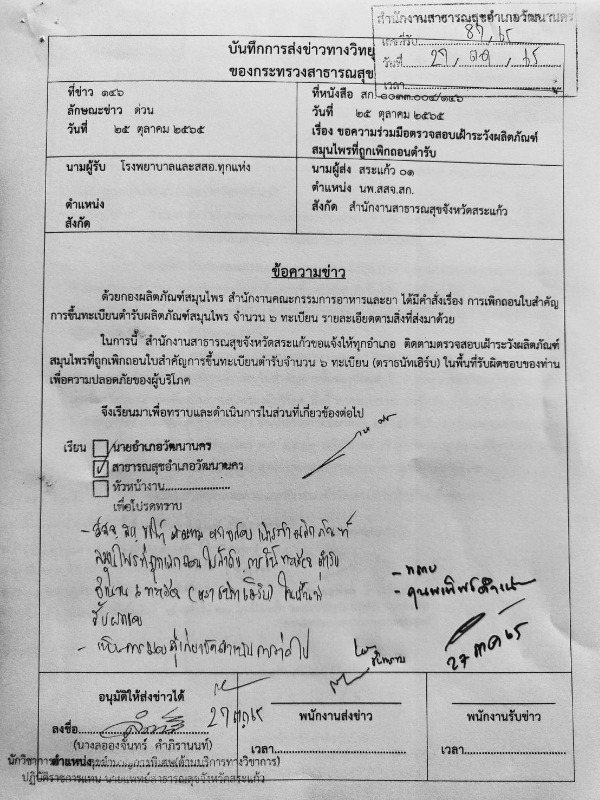 สำนักงานสาธารณสุขอำเภอวัฒนานคร
เลขที่รับ 87/65
วันที่ 27, ตค, 65
เวลา
บันทึกการส่งข่าวทางวิทยุ
ของกระทรวงสาธารณสุข
ที่ข่าว ๑๔๖
ลักษณะข่าว ด่วน
วันที่ ๒๕ ตุลาคม ๒๕๖๕
ที่หนังสือ สก.๐๐๓๓.๐๐๔/๑๔๖
วันที่ ๒๕ ตุลาคม ๒๕๖๕
เรื่อง ขอความร่วมมือตรวจสอบเฝ้าระวังผลิตภัณฑ์
สมุนไพรที่ถูกเพิกถอนตำรับ
นามผู้รับ โรงพยาบาลและสสอ.ทุกแห่ง
ตำแหน่ง
สังกัด
นามผู้ส่ง สระแก้ว ๐๑
ตำแหน่ง นพ.สสจ.สก.
สังกัด สำนักงานสาธารณสุขจังหวัดสระแก้ว
ข้อความข่าว
ด้วยกองผลิตภัณฑ์สมุนไพร สำนักงานคณะกรรมการอาหารและยา ได้มีคำสั่งเรื่อง การเพิกถอนใบสำคัญ
การขึ้นทะเบียนตำรับผลิตภัณฑ์สมุนไพร จำนวน ๖ ทะเบียน รายละเอียดตามสิ่งที่ส่งมาด้วย
ในการนี้ สำนักงานสาธารณสุขจังหวัดสระแก้วขอแจ้งให้ทุกอำเภอ ติดตามตรวจสอบเฝ้าระวังผลิตภัณฑ์
สมุนไพรที่ถูกเพิกถอนใบสำคัญการขึ้นทะเบียนตำรับจำนวน ๖ ทะเบียน (ตราธนัทเฮิร์บ) ในพื้นที่รับผิดชอบของท่าน
เพื่อความปลอดภัยของผู้บริโภค
จึงเรียนมาเพื่อทราบและดำเนินการในส่วนที่เกี่ยวข้องต่อไป
เรียน นายอำเภอวัฒนานคร
สาธารณสุขอำเภอวัฒนานคร
หัวหน้างาน
เพื่อโปรดทราบ
- สสจ. สก. ตรวจสอบเฝ้าระวังผลิตภัณฑ์
สมุนไพรที่ถูกเพิกถอนใบสำคัญ การขึ้นทะเบียนตำรับ
จำนวน ๖ ทะเบียน (ตราธนัทเฮิร์บ) ในพื้นที่
รับผิดชอบ
- ทราบ
27 ตค 65
27 ตค 65
อนุมัติให้ส่งข่าวได้
ลงชื่อ
(นางลอองจันทร์ คำภิรานนท์)
นักวิชาการสาธารณสุขชำนาญการพิเศษ(ด้านบริการทางวิชาการ)
ตำแหน่ง
ปฏิบัติราชการแทน นายแพทย์สาธารณสุขจังหวัดสระแก้ว
พนักงานส่งข่าว
เวลา
พนักงานรับข่าว
เวลา